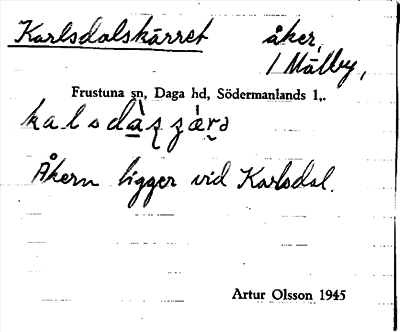 Karlsdalskärret åker,
/ Målby,
Frustuna sn, Daga hd, Södermanlands l,.
Åkern ligger vid Karlsdal.
Artur Olsson 1945